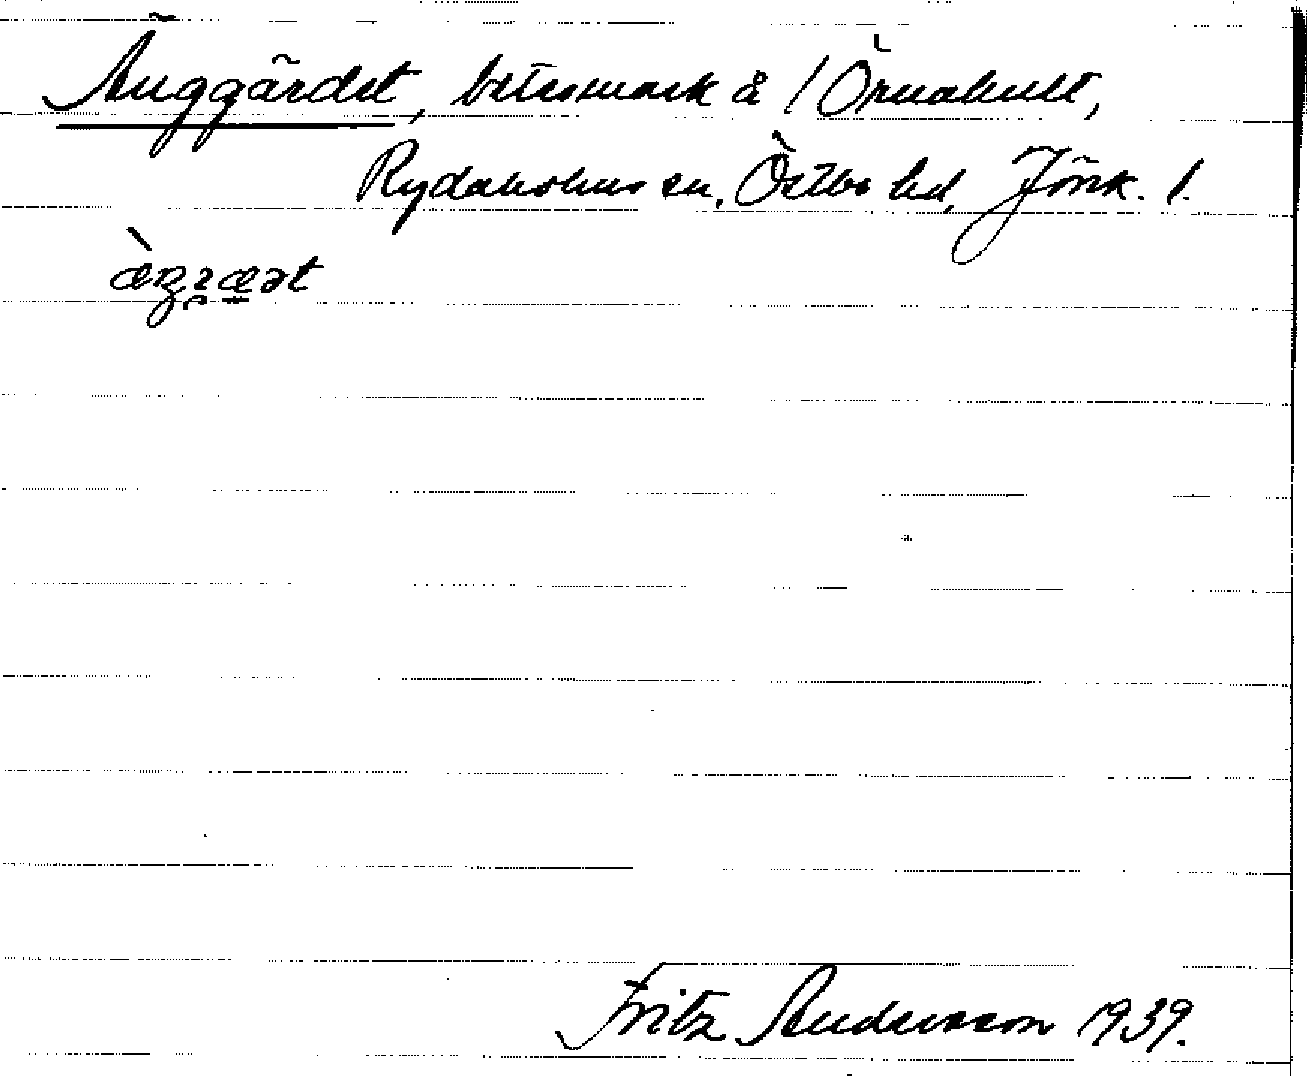 Änggärdet, betesmark å / Örnahult,
Rydaholms sn, Östbo hd, Jönk. l.
Fritz Andersson 1939.